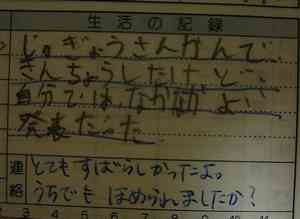 生活の記録
じゅぎょうさんかんで、
きんちょうしたけど、
自分では、なかなかよい
発表だった。
連絡
とてもすばらしかったよ。
うちでも ほめられましたか?
3 4 5 6 7 8 9 10 11